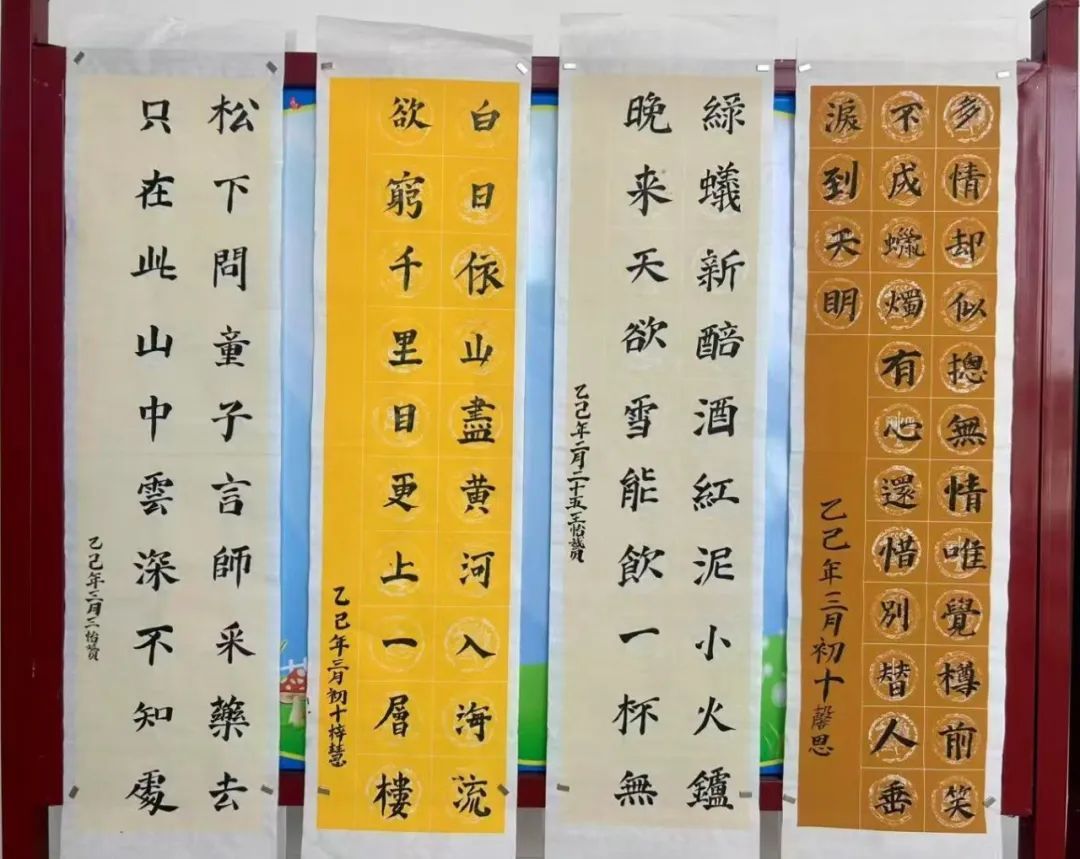 多情却似摠無情唯覺樽前笑
不成蠟燭有心還惜別替人垂
淚到天明
乙己年三月初十馨思
綠蟻新醅酒紅泥小火鑪
晚来天欲雪能飲一杯無
乙己年二月二十五王怡
白日依山盡黄河入海流
欲窮千里目更上一層樓
乙己年三月初十梓慧
松下問童子言師采藥去
只在此山中雲深不知處
乙己年三月三怡